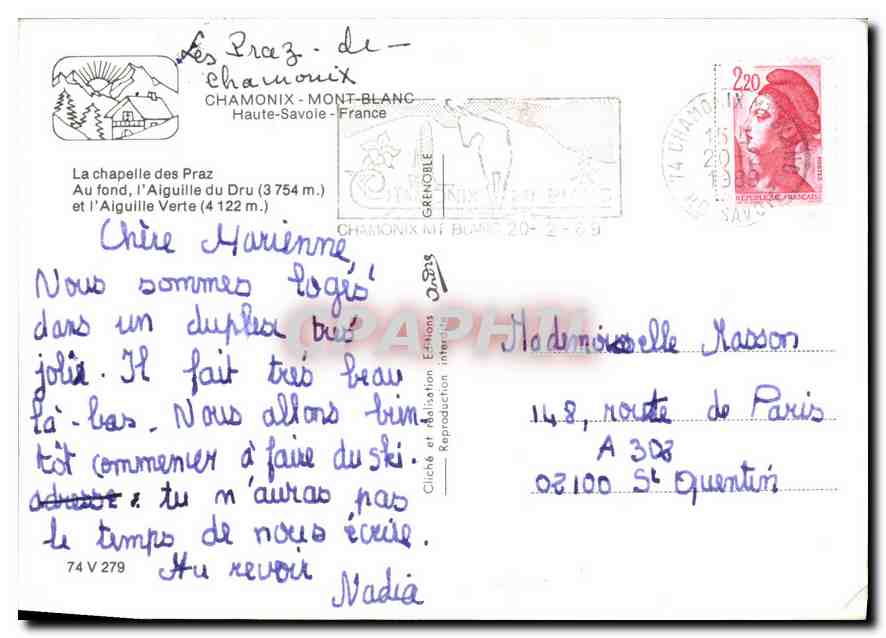 Les Praz-de-
Chamonix
CHAMONIX - MONT-BLANC
Haute-Savoie - France
La chapelle des Praz
Au fond, l'Aiguille du Dru (3 754 m.)
et l'Aiguille Verte (4 122 m.)
Chère Marienne,
Nous sommes logés
dans un duplex très
joli. Il fait très beau
là-bas. Nous allons bien-
tôt commencer à faire du ski.
adresse : tu n'auras pas
le temps de nous écrire.
Au revoir
Nadia
74 V 279
GRENOBLE
Cliché et réalisation Editions André
Reproduction interdite
CHAMONIX MT BLANC 20-2-89
74 CHAMONIX
1989
SAVOIE
2,20
POSTES
REPUBLIQUE FRANÇAISE
Mademoiselle Masson
148, route de Paris
A 308
02100 St Quentin
CPAPHIL